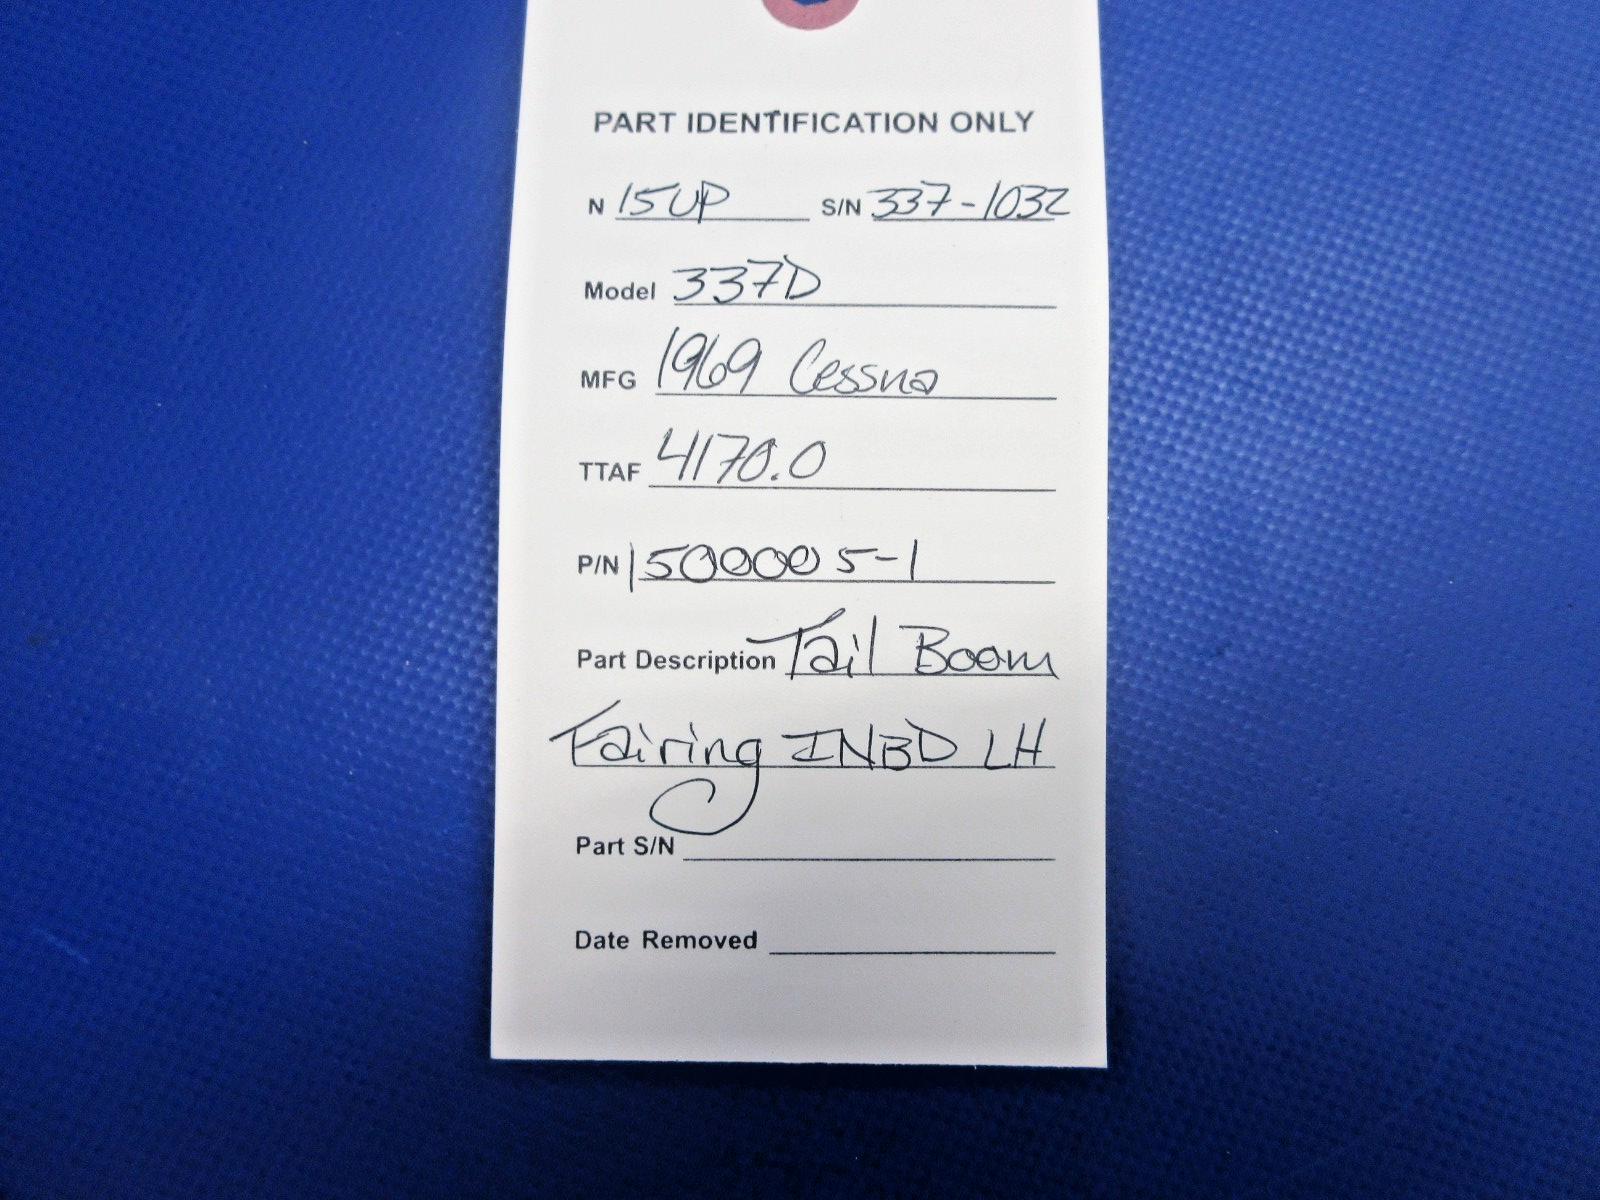 PART IDENTIFICATION ONLY
N 15UP S/N 337-1032
Model 337D
MFG 1969 Cessna
TTAF 4170.0
P/N 1500005-1
Part Description Tail Boom
Fairing INBD LH
Part S/N
Date Removed